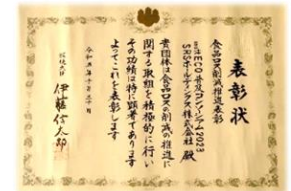 表彰状
食品ロス削減推進表彰
mottECO普及コンソーシアム2023
SRSホールディングス株式会社 殿
貴団体は食品ロスの削減の推進に
関する取組を積極的に行い
その功績は特に顕著であります
よってこれを表彰します
令和五年十月三十日
環境大臣
伊藤信太郎